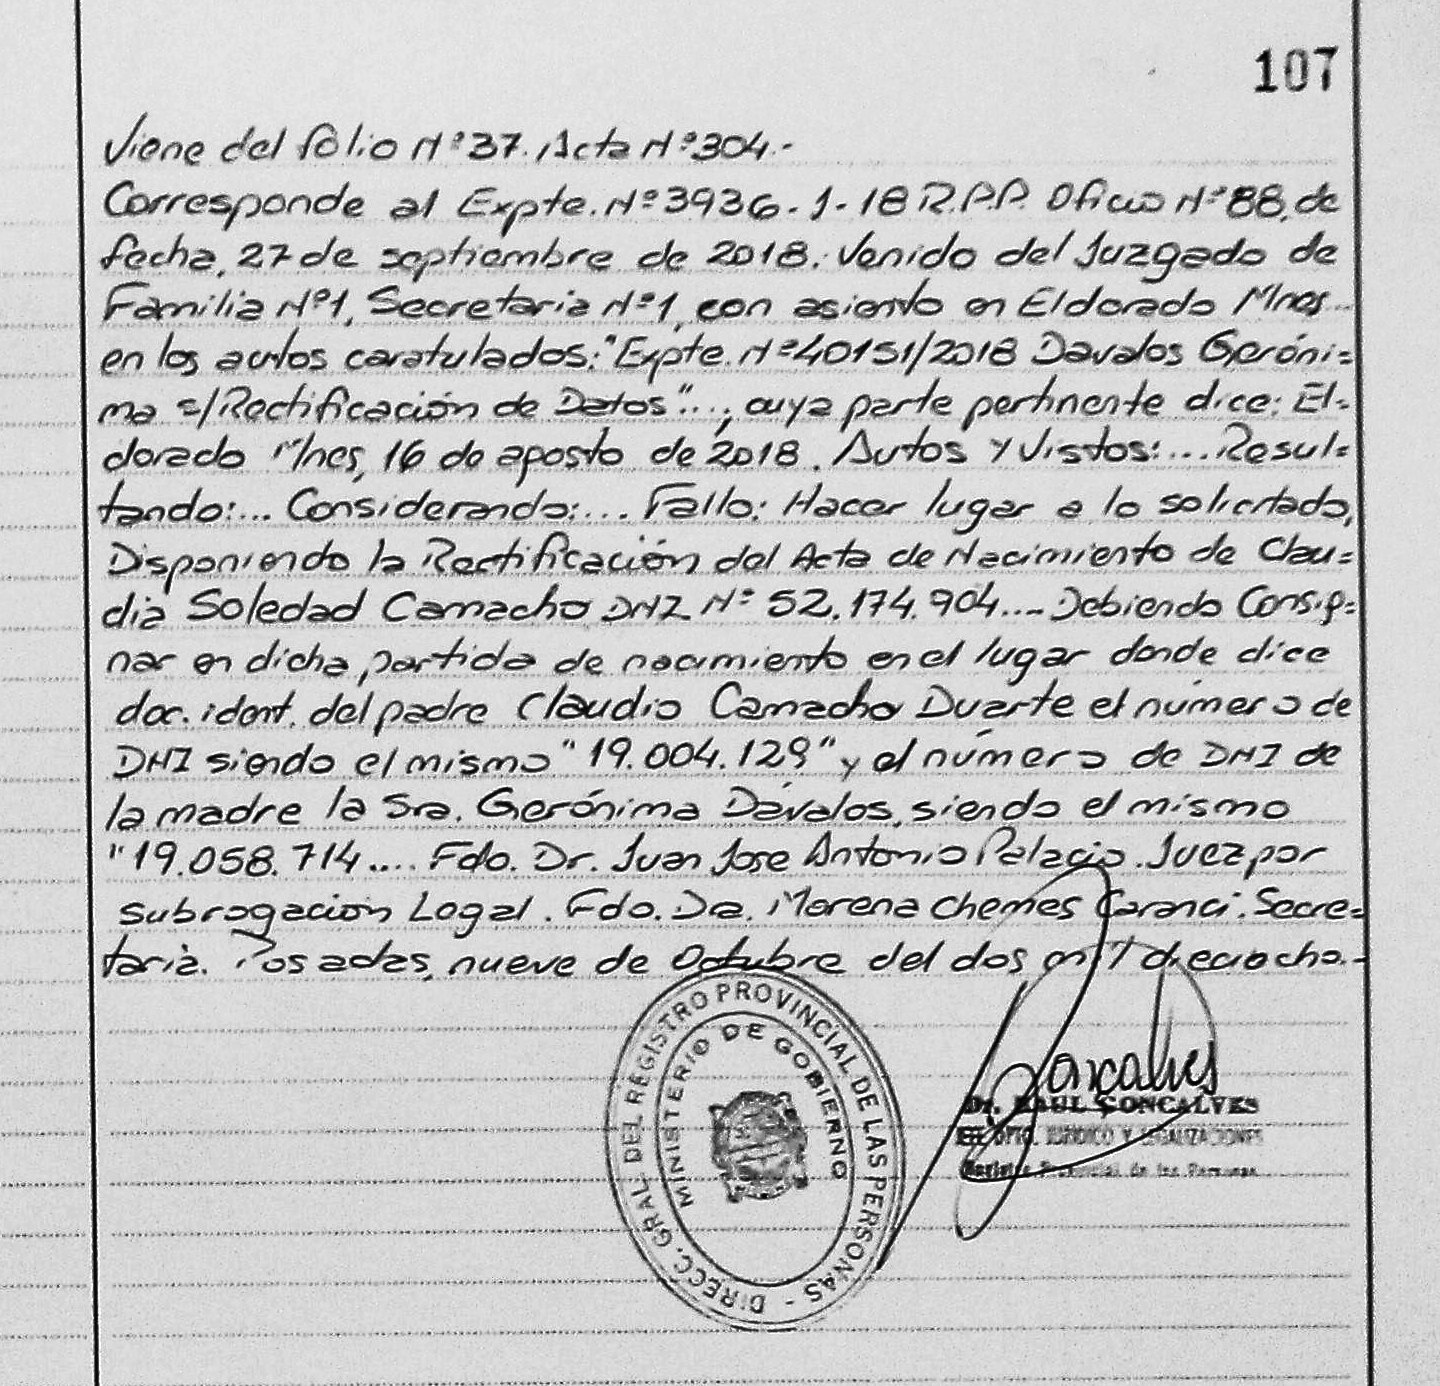 107
Viene del folio Nº37. Acta Nº304.-
Corresponde al Expte. Nº3936-1-18 R.P.P. Oficio Nº88, de
fecha, 27 de septiembre de 2018. Venido del Juzgado de
Familia Nº1, Secretaria Nº1, con asiento en Eldorado Mnes
en los autos caratulados: "Expte. Nº40151/2018 Davalos Geróni=
ma s/Rectificación de Datos"..., cuya parte pertinente dice: El=
dorado Mnes, 16 de agosto de 2018. Autos y Vistos:... Resul=
tando:... Considerando:... Fallo: Hacer lugar a lo solicitado,
Disponiendo la Rectificación del Acta de Nacimiento de Clau=
dia Soledad Camacho DNI Nº 52.174.904... Debiendo Consig=
nar en dicha partida de nacimiento en el lugar donde dice
doc. ident. del padre Claudio Camacho Duarte el número de
DNI siendo el mismo "19.004.129" y el número de DNI de
la madre la Sra. Gerónima Dávalos, siendo el mismo
"19.058.714.... Fdo. Dr. Juan Jose Antonio Palacio. Juez por
subrogacion Legal. Fdo. Dra. Morena Chemes Caranci. Secre=
taria. Posadas, nueve de Octubre del dos mil dieciocho.-
DIRECC. GRAL DEL REGISTRO PROVINCIAL DE LAS PERSONAS -
MINISTERIO DE GOBIERNO
Goncalves
Dr. RAUL GONCALVES
DPTO. JURIDICO Y LEGALIZACIONES
Registro Provincial de las Personas